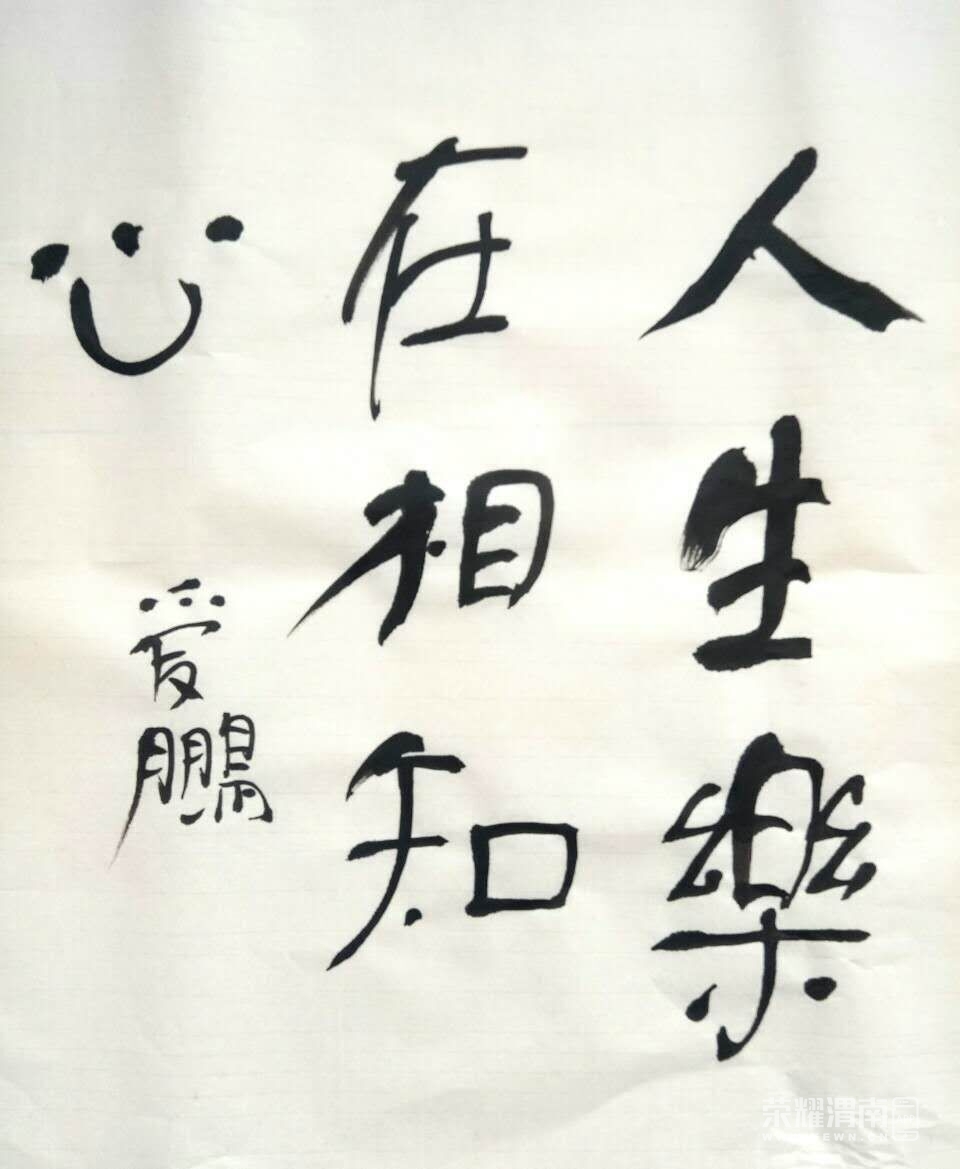 人生樂
在相知
心
爱鵬
荣耀渭南网